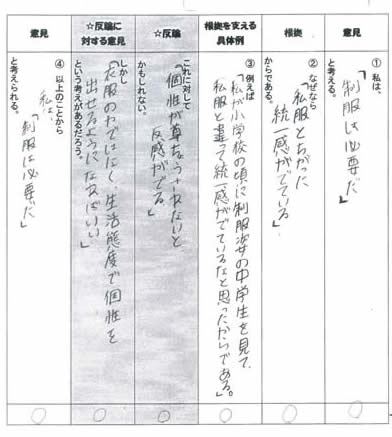 意見
①私は、
「制服は必要だ」
と考える。
根拠
②なぜなら
「私服とちがった
統一感がでている」
からである。
根拠を支える
具体例
③例えば
「私が小学校の頃に制服姿の中学生を見て、
私服と違って統一感がでているなと思ったからである。」
☆反論
これに対して
「個性が尊ちょうされないと
反感がでる」
かもしれない。
☆反論に
対する意見
しかし
「衣服のみではなく、生活態度で個性を
出せるようになればいい」
という考えがあるだろう。
意見
④以上のことから
私は、
「制服は必要だ」
と考えられる。